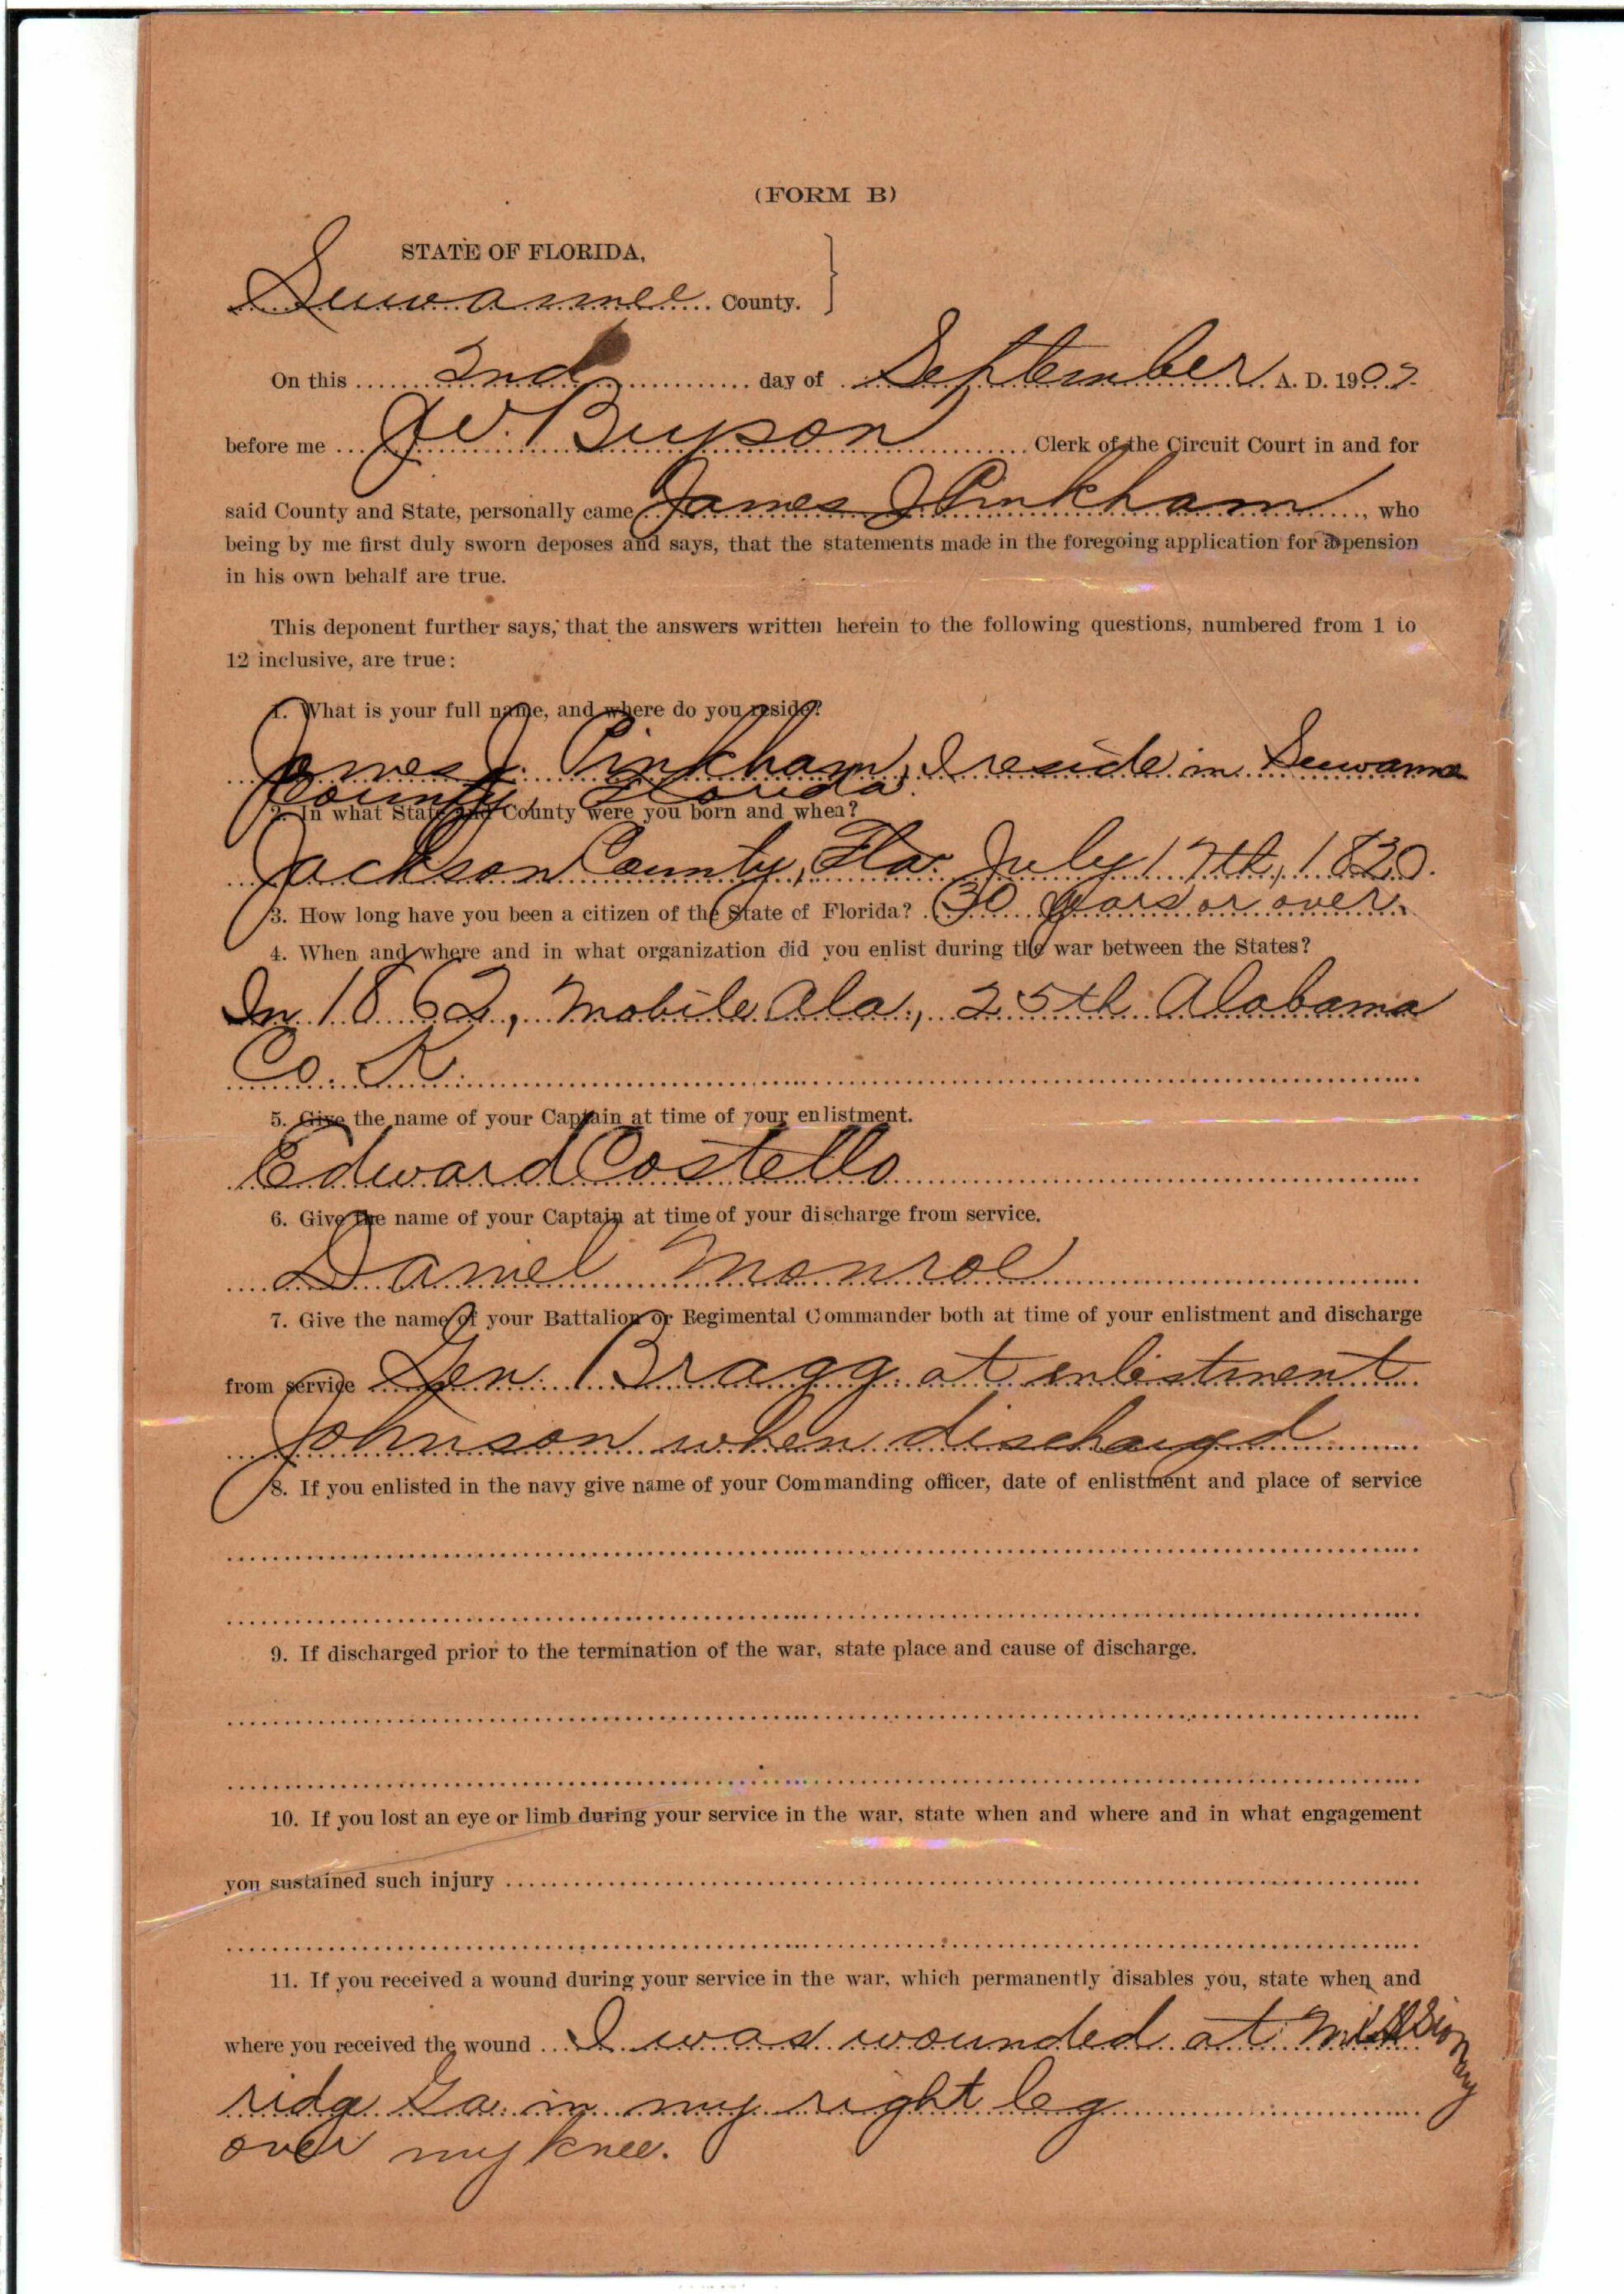 (FORM B)
STATE OF FLORIDA,
Suwannee County.
On this 2nd day of September A. D. 190
before me J W. Bryson Clerk of the Circuit Court in and for
said County and State, personally came James J Pinkham, who
being by me first duly sworn deposes and says, that the statements made in the foregoing application for a pension
in his own behalf are true.
This deponent further says, that the answers written herein to the following questions, numbered from 1 to
12 inclusive, are true:
1. What is your full name, and where do you reside?
James J. Pinkham, I reside in Suwannee
County, Florida.
2. In what State and County were you born and when?
Jackson County, Fla. July 17th, 1820.
3. How long have you been a citizen of the State of Florida? 30 years or over.
4. When and where and in what organization did you enlist during the war between the States?
In 1862, Mobile Ala., 25th Alabama
Co. K.
5. Give the name of your Captain at time of your enlistment.
Edward Costello
6. Give the name of your Captain at time of your discharge from service.
Daniel Monroe
7. Give the name of your Battalion or Regimental Commander both at time of your enlistment and discharge
from service Gen. Bragg at enlistment
Johnson when dischargd
8. If you enlisted in the navy give name of your Commanding officer, date of enlistment and place of service
9. If discharged prior to the termination of the war, state place and cause of discharge.
10. If you lost an eye or limb during your service in the war, state when and where and in what engagement
you sustained such injury
11. If you received a wound during your service in the war, which permanently disables you, state when and
where you received the wound I was wounded at Missionary
ridge Ga. in my right leg
over my knee.